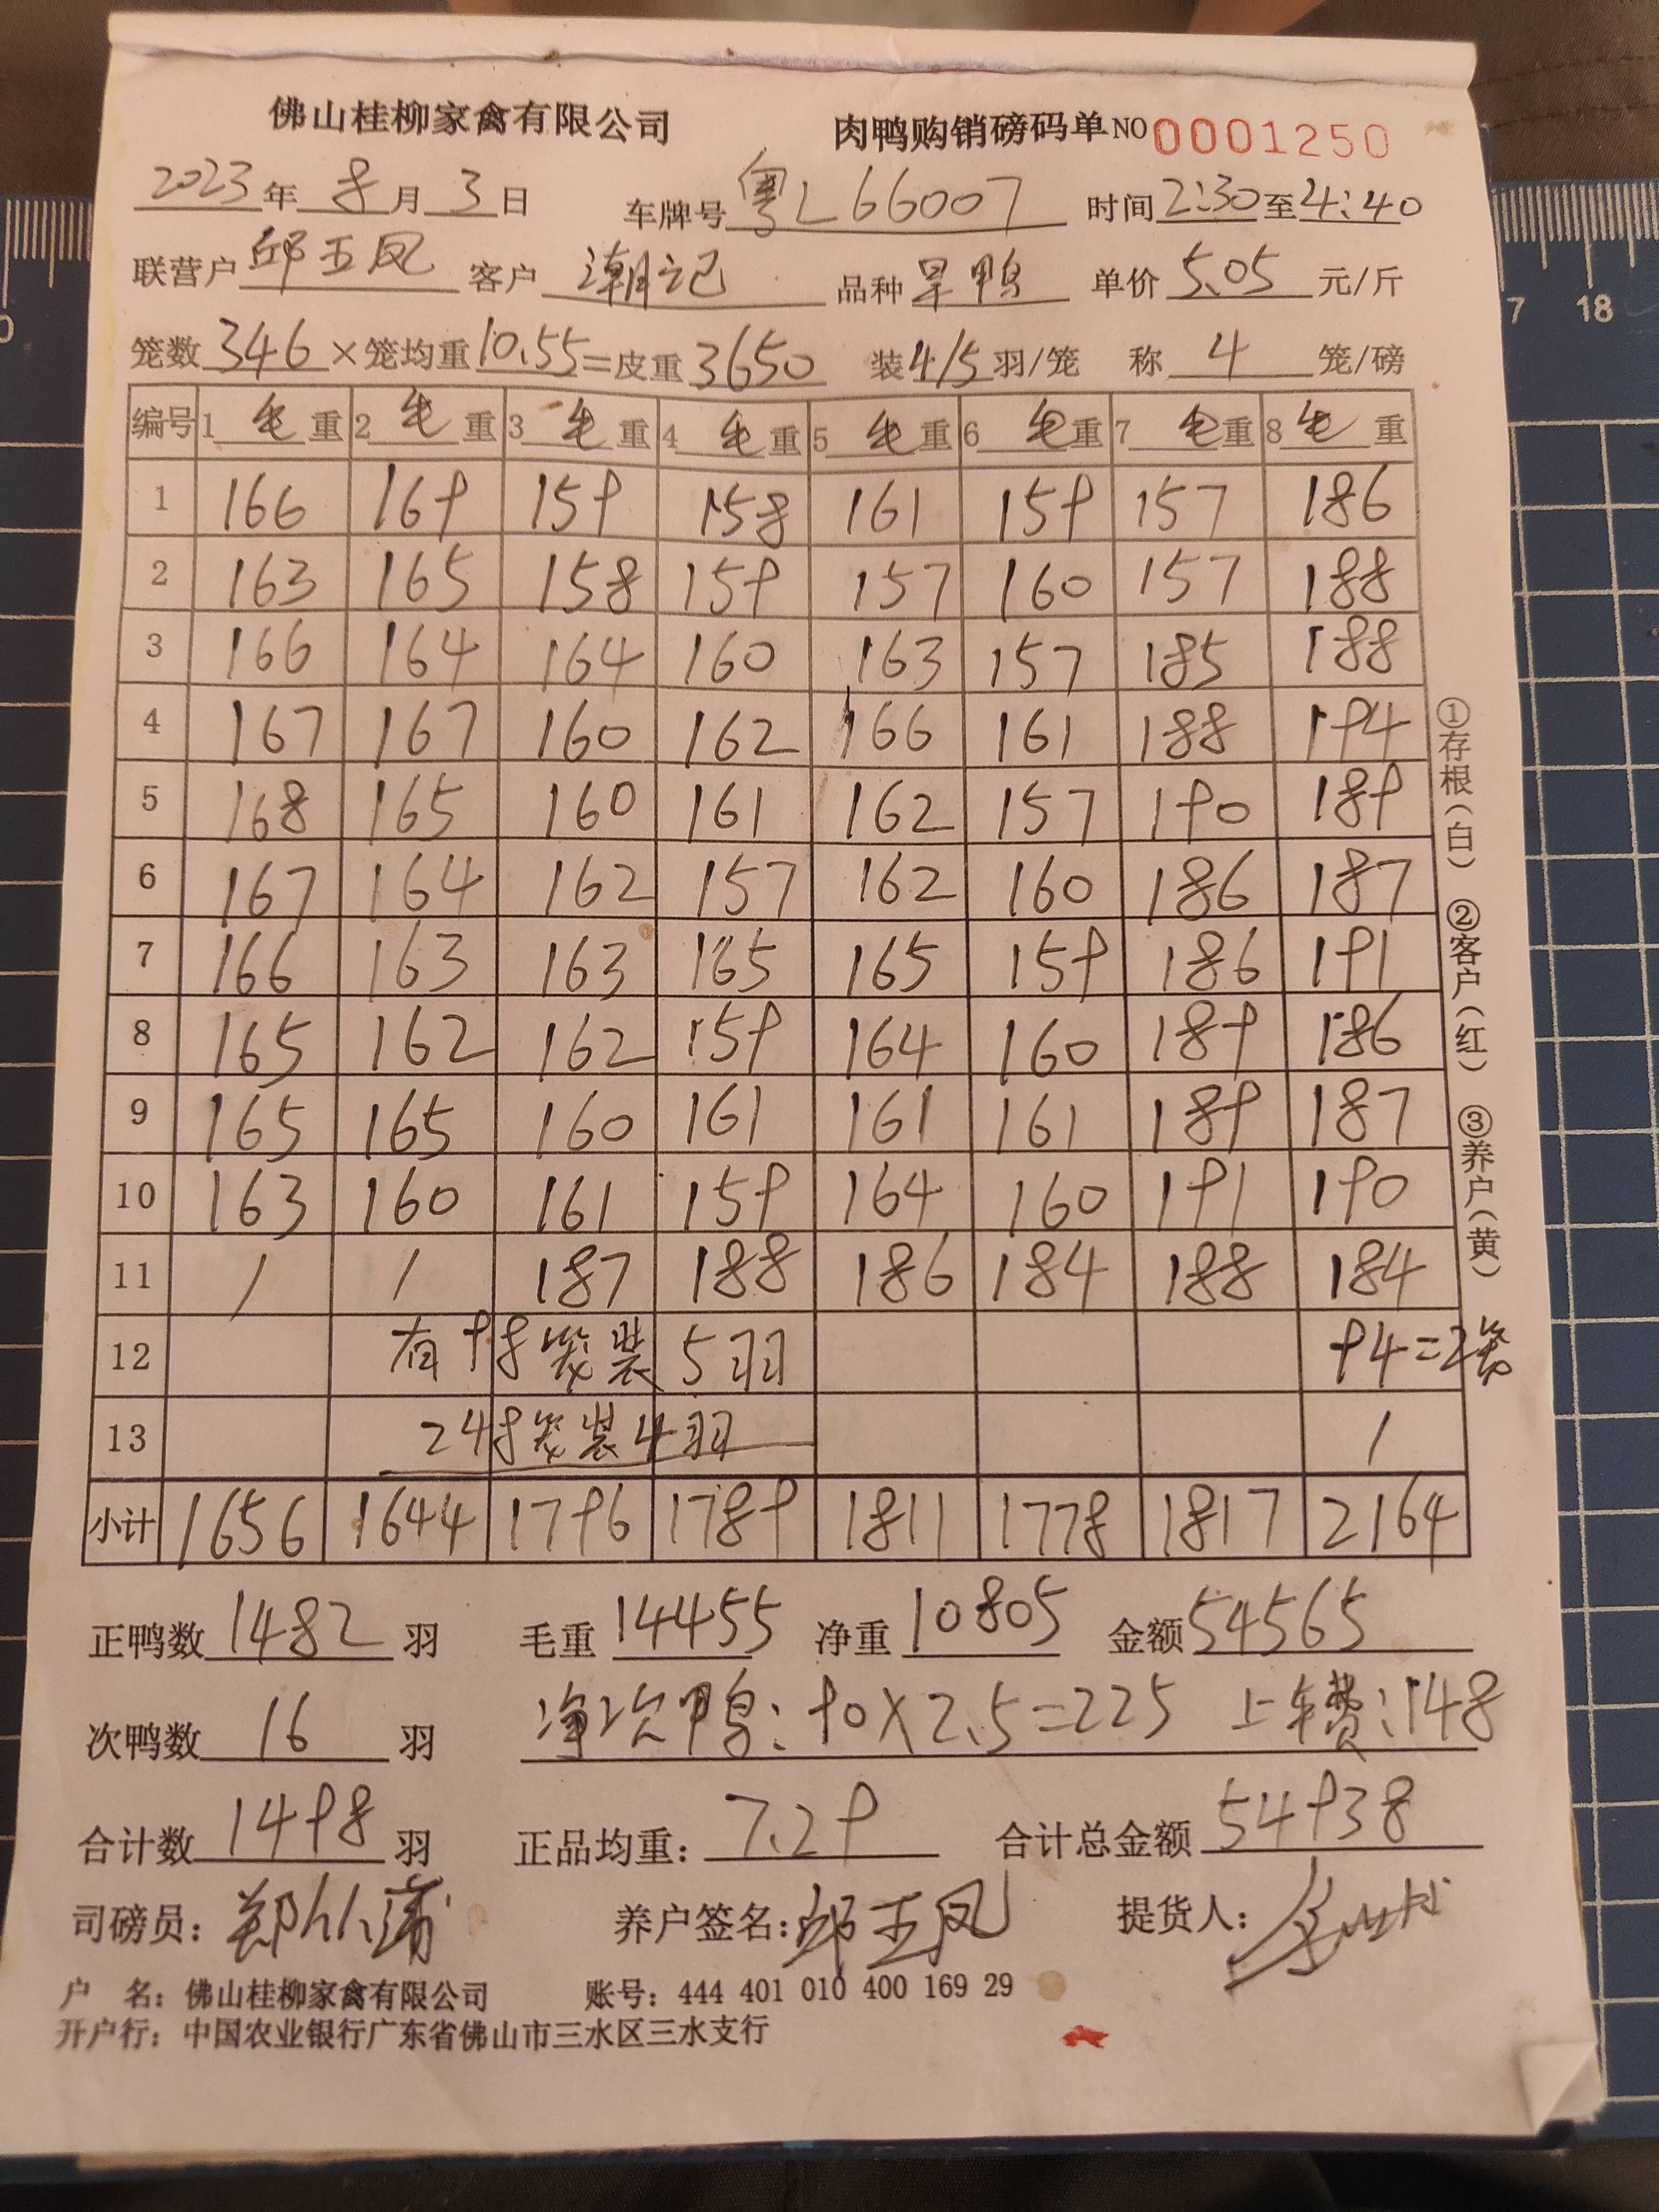 佛山桂柳家禽有限公司 肉鸭购销磅码单NO 0001250
2023年8月3日 车牌号粤L66007 时间2:30至4:40
联营户邱玉凤 客户潮记 品种旱鸭 单价5.05元/斤
笼数346×笼均重10.55=皮重3650 装4/5羽/笼 称4笼/磅
编号 1毛重 2毛重 3毛重 4毛重 5毛重 6毛重 7毛重 8毛重
1 166 169 159 158 161 159 157 186
2 163 165 158 159 157 160 157 188
3 166 164 164 160 163 157 185 188
4 167 167 160 162 166 161 188 194
5 168 165 160 161 162 157 190 189
6 167 164 162 157 162 160 186 187
7 166 163 163 165 165 159 186 191
8 165 162 162 159 164 160 189 186
9 165 165 160 161 161 161 189 187
10 163 160 161 159 164 160 191 190
11 / / 187 188 186 184 188 184
12 有98笼装5羽 94=2笼
13 248笼装4羽 /
小计 1656 1644 1796 1789 1811 1778 1817 2164
正鸭数1482羽 毛重14455 净重10805 金额54565
次鸭数16羽 净次鸭:90×2.5=225 上车费:148
合计数1498羽 正品均重:7.29 合计总金额54938
司磅员:郑 养户签名:邱玉凤 提货人:
户 名:佛山桂柳家禽有限公司 账号:444 401 010 400 169 29
开户行:中国农业银行广东省佛山市三水区三水支行
①存根(白) ②客户(红) ③养户(黄)
7 18
0